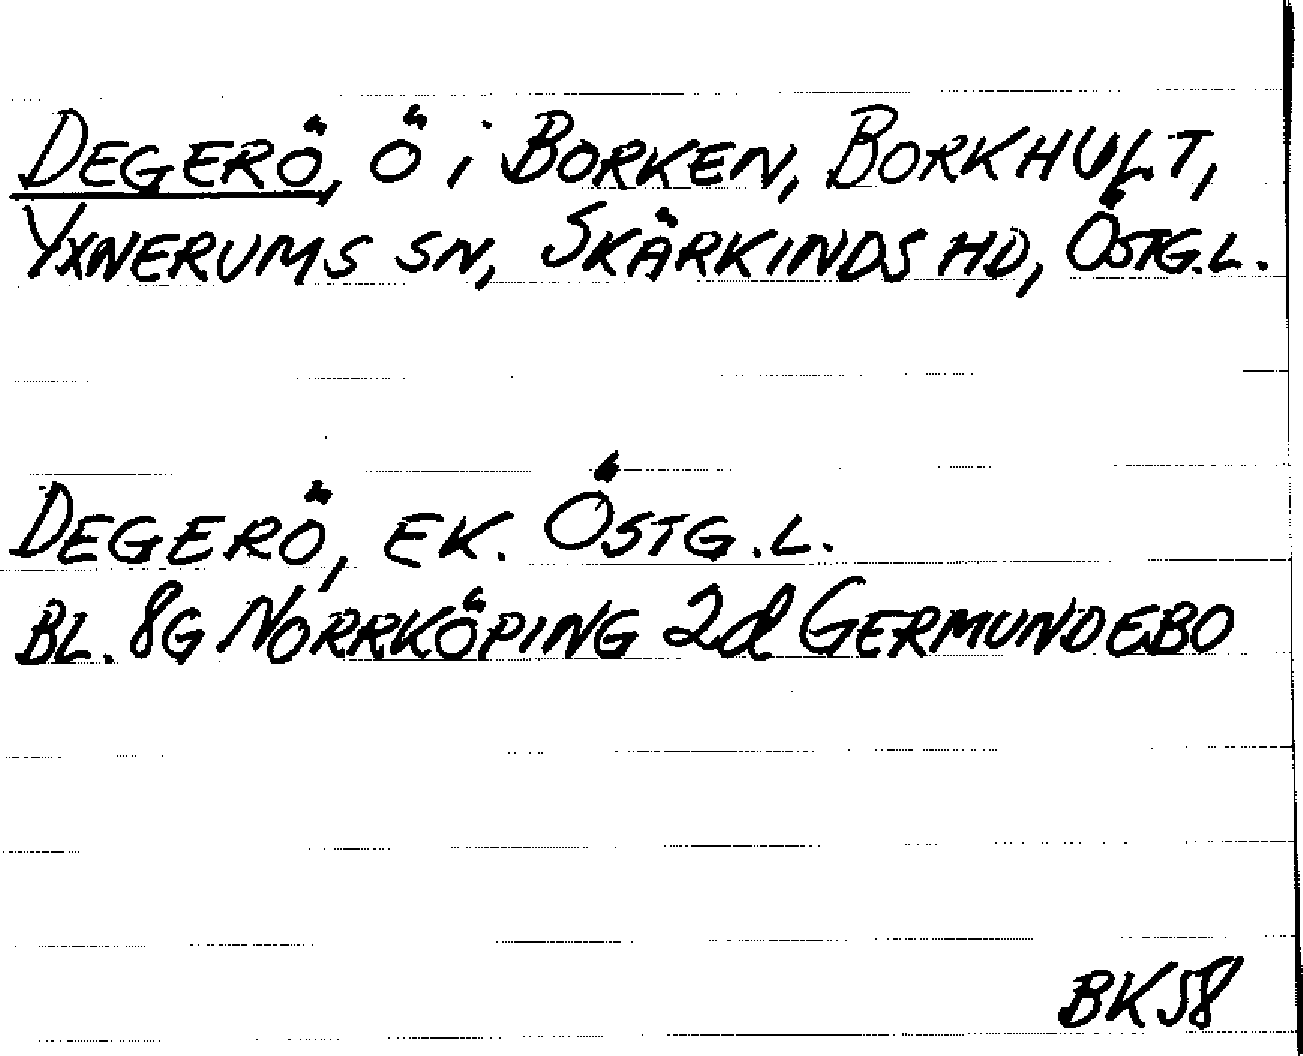 DEGERÖ, Ö i BORKEN, BORKHULT,
YXNERUMS SN, SKÄRKINDS HD, ÖSTG.L.
DEGERÖ, EK. ÖSTG.L.
BL. 8G NORRKÖPING 2d GERMUNDEBO
BK58